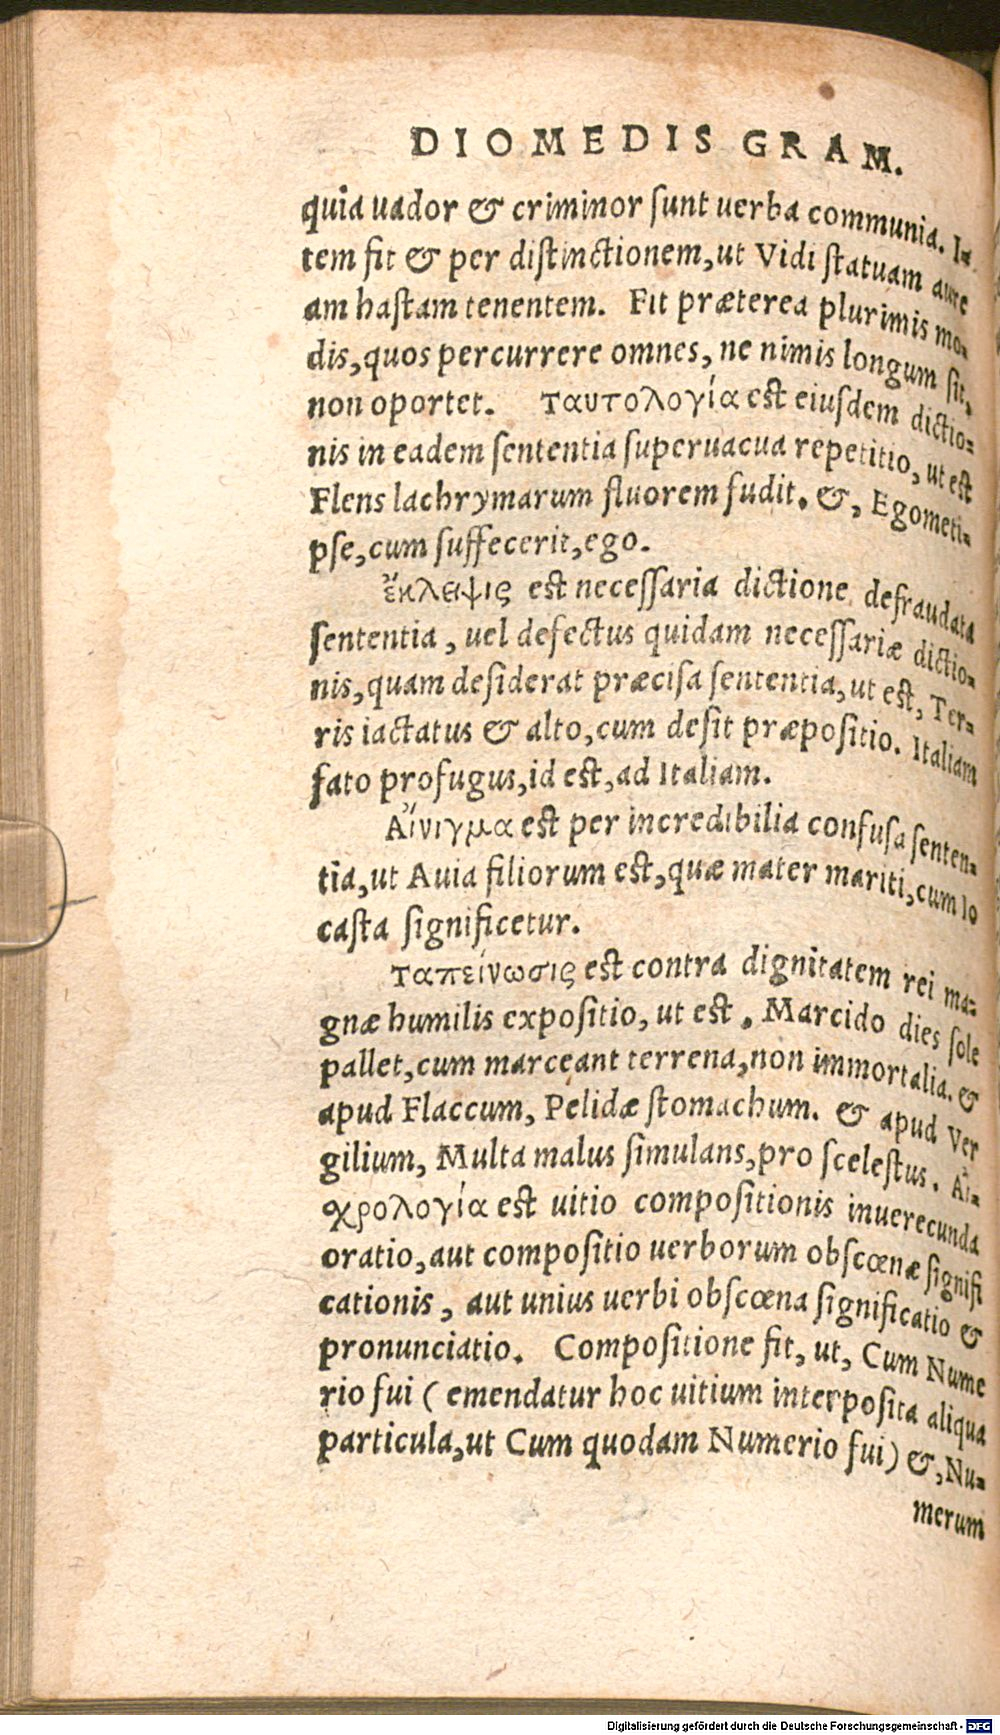 DIOMEDIS GRAM.
quia uador & criminor ſunt uerba communia. I-
tem fit & per diſtinctionem, ut Vidi ſtatuam aure
am haſtam tenentem. Fit præterea plurimis mo-
dis, quos percurrere omnes, ne nimis longum ſit,
non oportet. Ταυτολογία eſt eiuſdem dictio-
nis in eadem ſententia ſuperuacua repetitio, ut eſt
Flens lachrymarum fluorem fudit. &, Egometi-
pſe, cum ſuffecerit, ego.
ἔκλειψις eſt neceſſaria dictione defraudata
ſententia, uel defectus quidam neceſſariæ dictio-
nis, quam deſiderat præciſa ſententia, ut eſt, Ter-
ris iactatus & alto, cum deſit præpoſitio. Italiam
fato profugus, id eſt, ad Italiam.
Αἴνιγμα eſt per incredibilia confuſa ſenten-
tia, ut Auia filiorum eſt, quæ mater mariti, cum Io
caſta ſignificetur.
Ταπείνωσις eſt contra dignitatem rei ma-
gnæ humilis expoſitio, ut eſt. Marcido dies ſole
pallet, cum marceant terrena, non immortalia. &
apud Flaccum, Pelidæ ſtomachum. & apud Ver
gilium, Multa malus ſimulans, pro ſceleſtus. Αἰ-
χρολογία eſt uitio compoſitionis inuerecunda
oratio, aut compoſitio uerborum obſcœnæ ſignifi
cationis, aut unius uerbi obſcœna ſignificatio &
pronunciatio. Compoſitione fit, ut, Cum Nume
rio fui (emendatur hoc uitium interpoſita aliqua
particula, ut Cum quodam Numerio fui) &, Nu-
merum
Digitalisierung gefördert durch die Deutsche Forschungsgemeinschaft - DFG